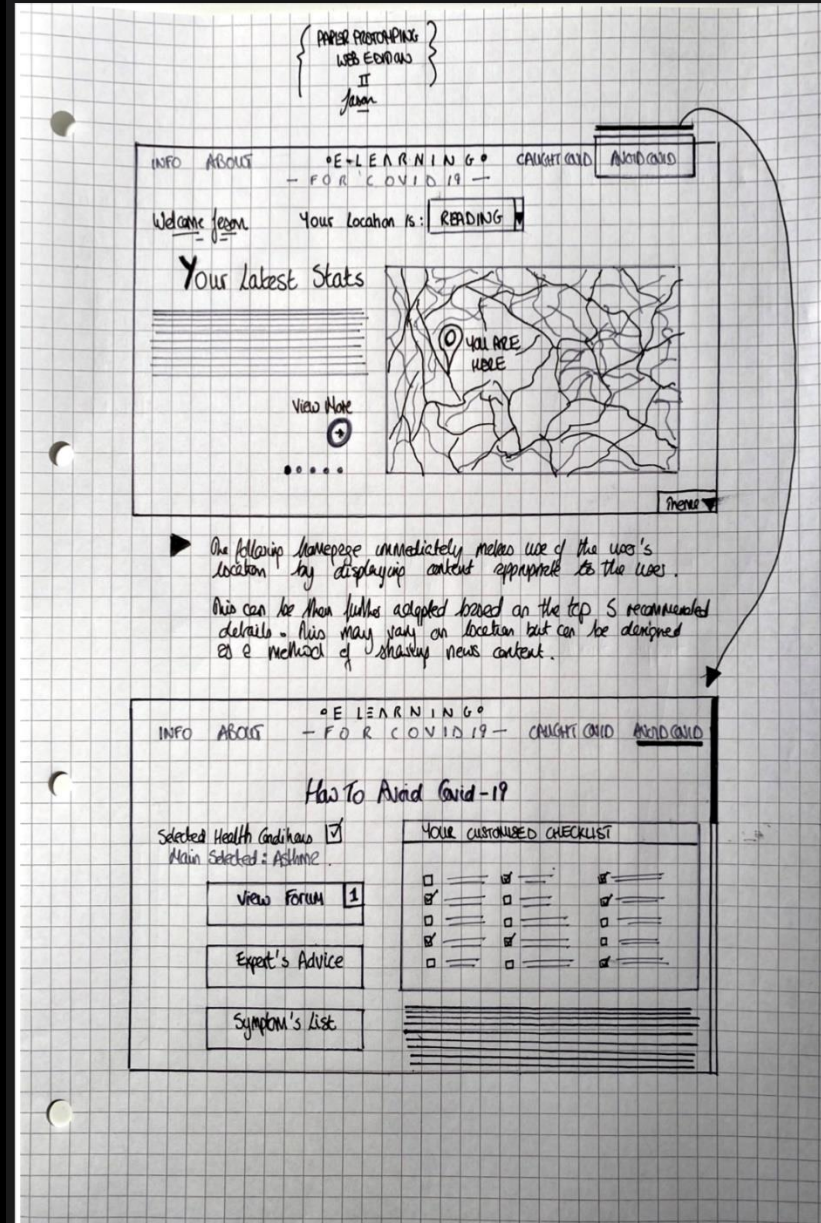 PAPER PROTOTYPING
WEB EDITION
II
Jason
INFO ABOUT E-LEARNING CAUGHT COVID AVOID COVID
- FOR COVID 19 -
Welcome Jason Your Location is: READING
Your Latest Stats
YOU ARE
HERE
View More
Theme
The following homepage immediately makes use of the user's
location by displaying content appropriate to the user.
This can be then further adapted based on the top 5 recommended
details. This may vary on location but can be designed
as a method of sharing news content.
E LEARNING
INFO ABOUT - FOR COVID 19 - CAUGHT COVID AVOID COVID
How To Avoid Covid-19
Selected Health Conditions
Main Selected: Asthma.
YOUR CUSTOMISED CHECKLIST
View Forum 1
Expert's Advice
Symptom's List